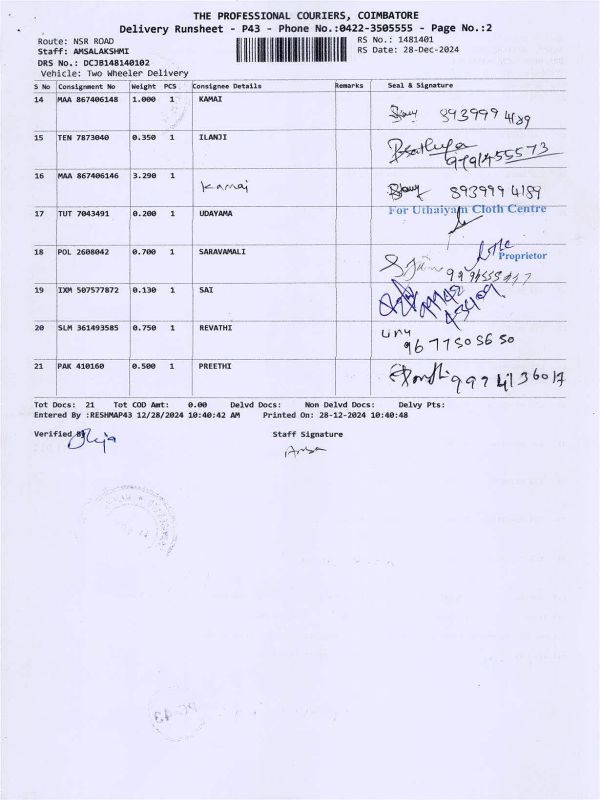 THE PROFESSIONAL COURIERS, COIMBATORE
Delivery Runsheet - P43 - Phone No.:0422-3505555 - Page No.:2
Route: NSR ROAD RS No.: 1481401
Staff: AMSALAKSHMI RS Date: 28-Dec-2024
DRS No.: DCJB148140102
Vehicle: Two Wheeler Delivery
S No Consignment No Weight PCS Consignee Details Remarks Seal & Signature
14 MAA 867406148 1.000 1 KAMAI
893999 4189
15 TEN 7873040 0.350 1 ILANJI
9791455573
16 MAA 867406146 3.290 1
Kamai 893999 4189
17 TUT 7043491 0.200 1 UDAYAMA For Uthaiyam Cloth Centre
Proprietor
18 POL 2608042 0.700 1 SARAVAMALI
19 IXM 507577872 0.130 1 SAI
20 SLM 361493585 0.750 1 REVATHI
9677505650
21 PAK 410160 0.500 1 PREETHI
9994136017
Tot Docs: 21 Tot COD Amt: 0.00 Delvd Docs: Non Delvd Docs: Delvy Pts:
Entered By :RESHMAP43 12/28/2024 10:40:42 AM Printed On: 28-12-2024 10:40:48
Verified By Staff Signature